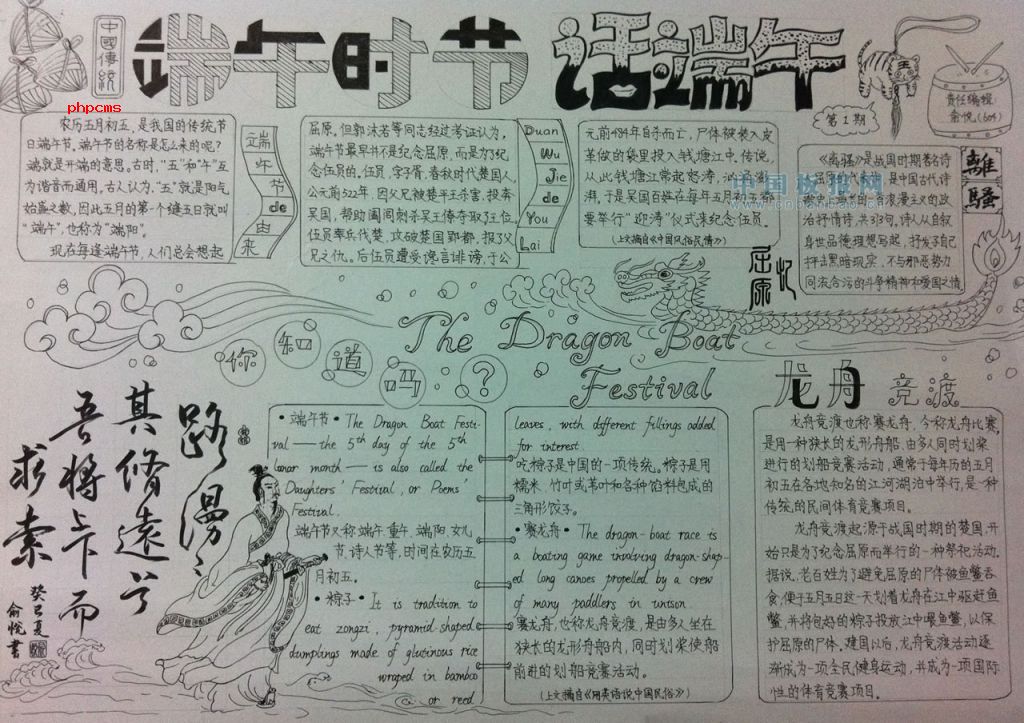 中國傳統
端午时节
话端午
phpcms
第1期
责任编辑
俞悦(604)
农历五月初五,是我国的传统节
日端午节。端午节的名称是怎么来的呢?
端就是开端的意思。古时,“五”和“午”互
为谐音而通用。古人认为,“五”就是阳气
始盛之数,因此五月的第一个缝五日就叫
“端午”,也称为“端阳”。
现在每逢端午节,人们总会想起
端午节de由来
屈原。但郭沫若等同志经过考证认为,
端午节最早并不是纪念屈原,而是为了纪
念伍员的。伍员,字子胥,春秋时代楚国人。
公元前522年,因父兄被楚平王杀害,投奔
吴国,帮助阖闾刺杀吴王僚夺取了王位。
伍员率兵伐楚,攻破楚国郢都,报了父
兄之仇。后伍员遭受谗言诽谤,于公
Duan
Wu
Jie
de
You
Lai
元前484年自杀而亡,尸体被装入皮
革做的袋里投入钱塘江中。传说,
从此钱塘江常起怒涛,汹涌澎
湃,于是吴国百姓在每年五月初五都
要举行“迎涛”仪式来纪念伍员。
(上文摘自《中国民俗风情》)
中国板报网
《离骚》是战国时期著名诗
人屈原的代表作,是中国古代诗
政治抒情诗,共373句,诗人从自叙
身世品德理想写起,抒发了自己
抨击黑暗现实,不与邪恶势力
同流合污的斗争精神和爱国之情
離騷
忆屈原
The Dragon Boat
Festival
你知道吗?
龙舟竞渡
路漫漫
其脩遠兮
吾將上下而
求索
癸巳夏
俞悦書
•端午节•The Dragon Boat Festi-
val——the 5th day of the 5th
lunar month—is also called the
Daughters' Festival, or Poems'
Festival.
端午节又称端午,重午,端阳,女儿
节,诗人节等,时间在农历五
月初五。
•粽子•It is tradition to
eat zongzi, pyramid-shaped
dumplings made of glutinous rice
wraped in bamboo
or reed
leaves, with different fillings added
for interest.
吃粽子是中国的一项传统。粽子是用
糯米、竹叶或苇叶和各种馅料包成的
三角形饺子。
•赛龙舟•The dragon-boat race is
a boating game involving dragon-shap-
ed long canoes propelled by a crew
of many paddlers in unison.
赛龙舟,也称龙舟竞渡,是由多人坐在
狭长的龙形舟船内,同时划桨使船
前进的划船竞赛活动。
(上文摘自《用英语说中国民俗》)
龙舟竞渡也称赛龙舟,今称龙舟比赛,
是用一种狭长的龙形舟船,由多人同时划桨
进行的划船竞赛活动,通常于每年历的五月
初五在各地知名的江河湖泊中举行,是一种
传统的民间体育竞赛项目。
龙舟竞渡起源于战国时期的楚国,开
始只是为了纪念屈原而举行的一种祭祀活动。
据说,老百姓为了避免屈原的尸体被鱼蟹吞
食,便于五月五日这一天划着龙舟在江中驱赶鱼
蟹,并将包好的粽子投放江中喂鱼蟹,以保
护屈原的尸体。建国以后,龙舟竞渡活动逐
渐成为一项全民健身运动,并成为一项国际
性的体育竞赛项目。